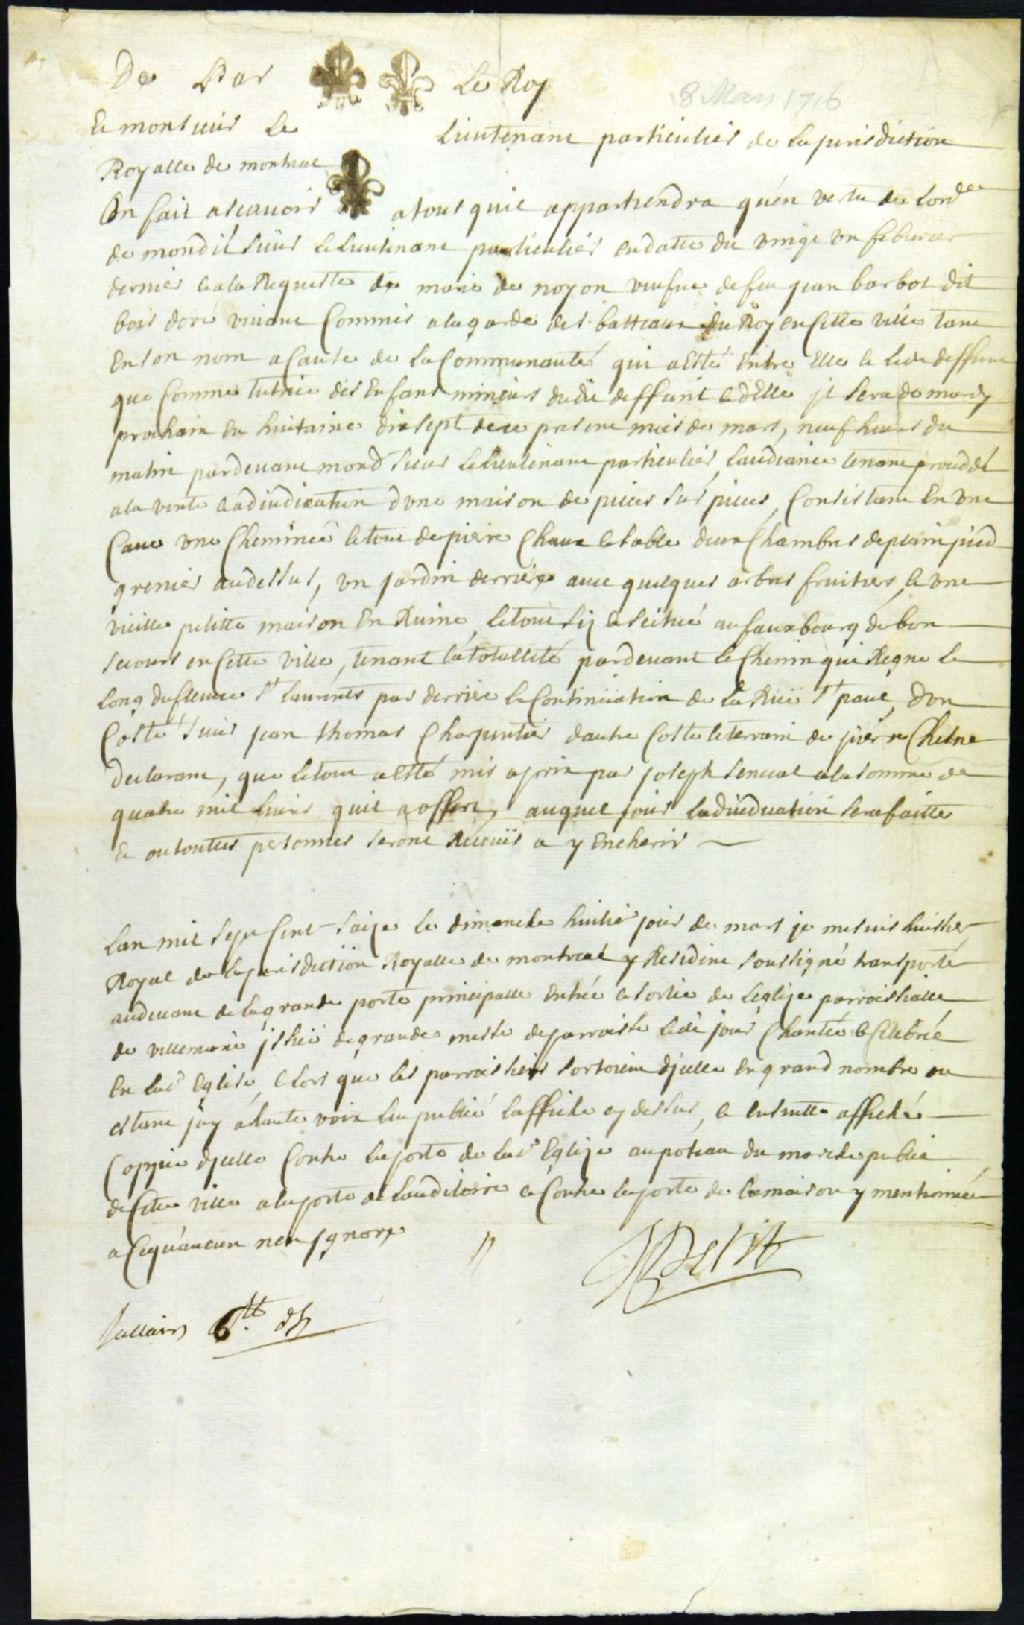 De Par Le Roy
8 Mars 1716
Et monsieur Le Lieutenant particulier de la jurisdiction
Royalle de montreal
On fait ascauoir a tous quil appartiendra qu'en vertu de Lord.ce
de mondit Sieur le Lieutenant particulier endatte du vingt vn feburier
dernier et a la Requeste de marie de noyon veufue de feu jean barbot dit
bois doré viuant Commis a la garde des batteaux du Roy en Cette ville tant
En son nom a Cause de la Communauté qui a Esté Entre Elle et le dt deffunt
que Comme tutrice des Enfans mineurs dudit deffunt et d'Elle jl sera de mardy
prochain en huitaine dixsept de ce present mois de mars, neuf heures du
matin pardeuant mond Sieur le lieutenant particulier, laudiance tenant proceddé
a la vente et adiudication d'vne maison de pieces sur pieces, Consistant En vne
Caue vne Cheminée le tout de pierre Chaux et sable deux Chambres de plain pied
grenier au dessus, vn jardin derriere auec quelques arbres fruitiers, et vne
vieille petitte maison En Ruine, le tout sis et scitué au fauxbourg de bon
secours en Cette ville, tenant la totallité pardeuant le Chemin qui Regne le
long du fleuue St laurent par derriere la Continüation de la Rüe St paul, d'vn
Costé Sieur jean thomas Charpentier d'autre Costé le terrain de pierre Chesne
declarant, que le tout a Esté mis a prix par joseph Senecal a la somme de
quatre mil liures quil a offert, auquel jour ladiudication sera faitte
Et ou touttes personnes seront Receües a y Encherir

Lan mil Sept Cent Saize le dimanche huitie jour de mars je me suis huissier
Royal de la jurisdiction Royalle de montreal y Residant soussigné transporté
audeuant de la grande porte principalle entrée et sortie de leglise parroissialle
de villemarie jssüe de grande messe de parroisse led jour Chantée et Celebrée
En lad Eglise, et lors que les parroissiens sortoient d'jcelle En grand nombre ou
estant j'ay a haute voix leu publié laffiche cy dessus, et ensuitte affiché
Coppie d'jcelle Contre la porte de lad Eglise au poteau du marché public
de Cette ville a la porte de lauditoire et Contre la porte de la maison y mentionnée
a Ce qu'aucun n'en jgnore
Petit
Sallaire 6tt